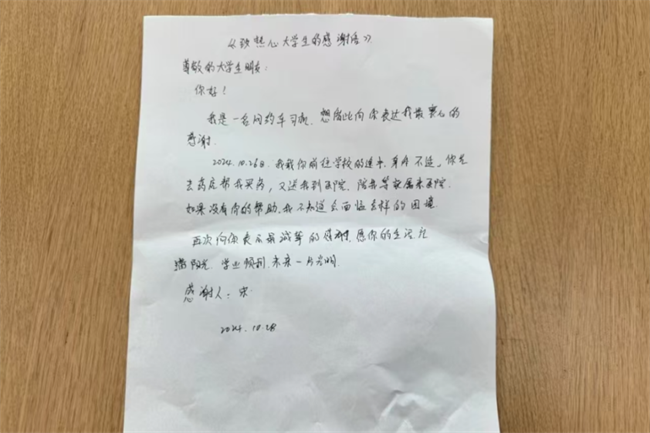 《致热心大学生的感谢信》
尊敬的大学生朋友:
你好!
我是一名网约车司机,想借此向你表达我最衷心的
感谢.
2024.10.26日,我载你前往学校的途中,身体不适,你先
去药店帮我买药,又送我到医院,陪我等家属来医院.
如果没有你的帮助,我不知道会面临怎样的困境
再次向你表示最诚挚的感谢,愿你的生活充
满阳光,学业顺利,未来一片光明.
感谢人:宋
2024.10.28